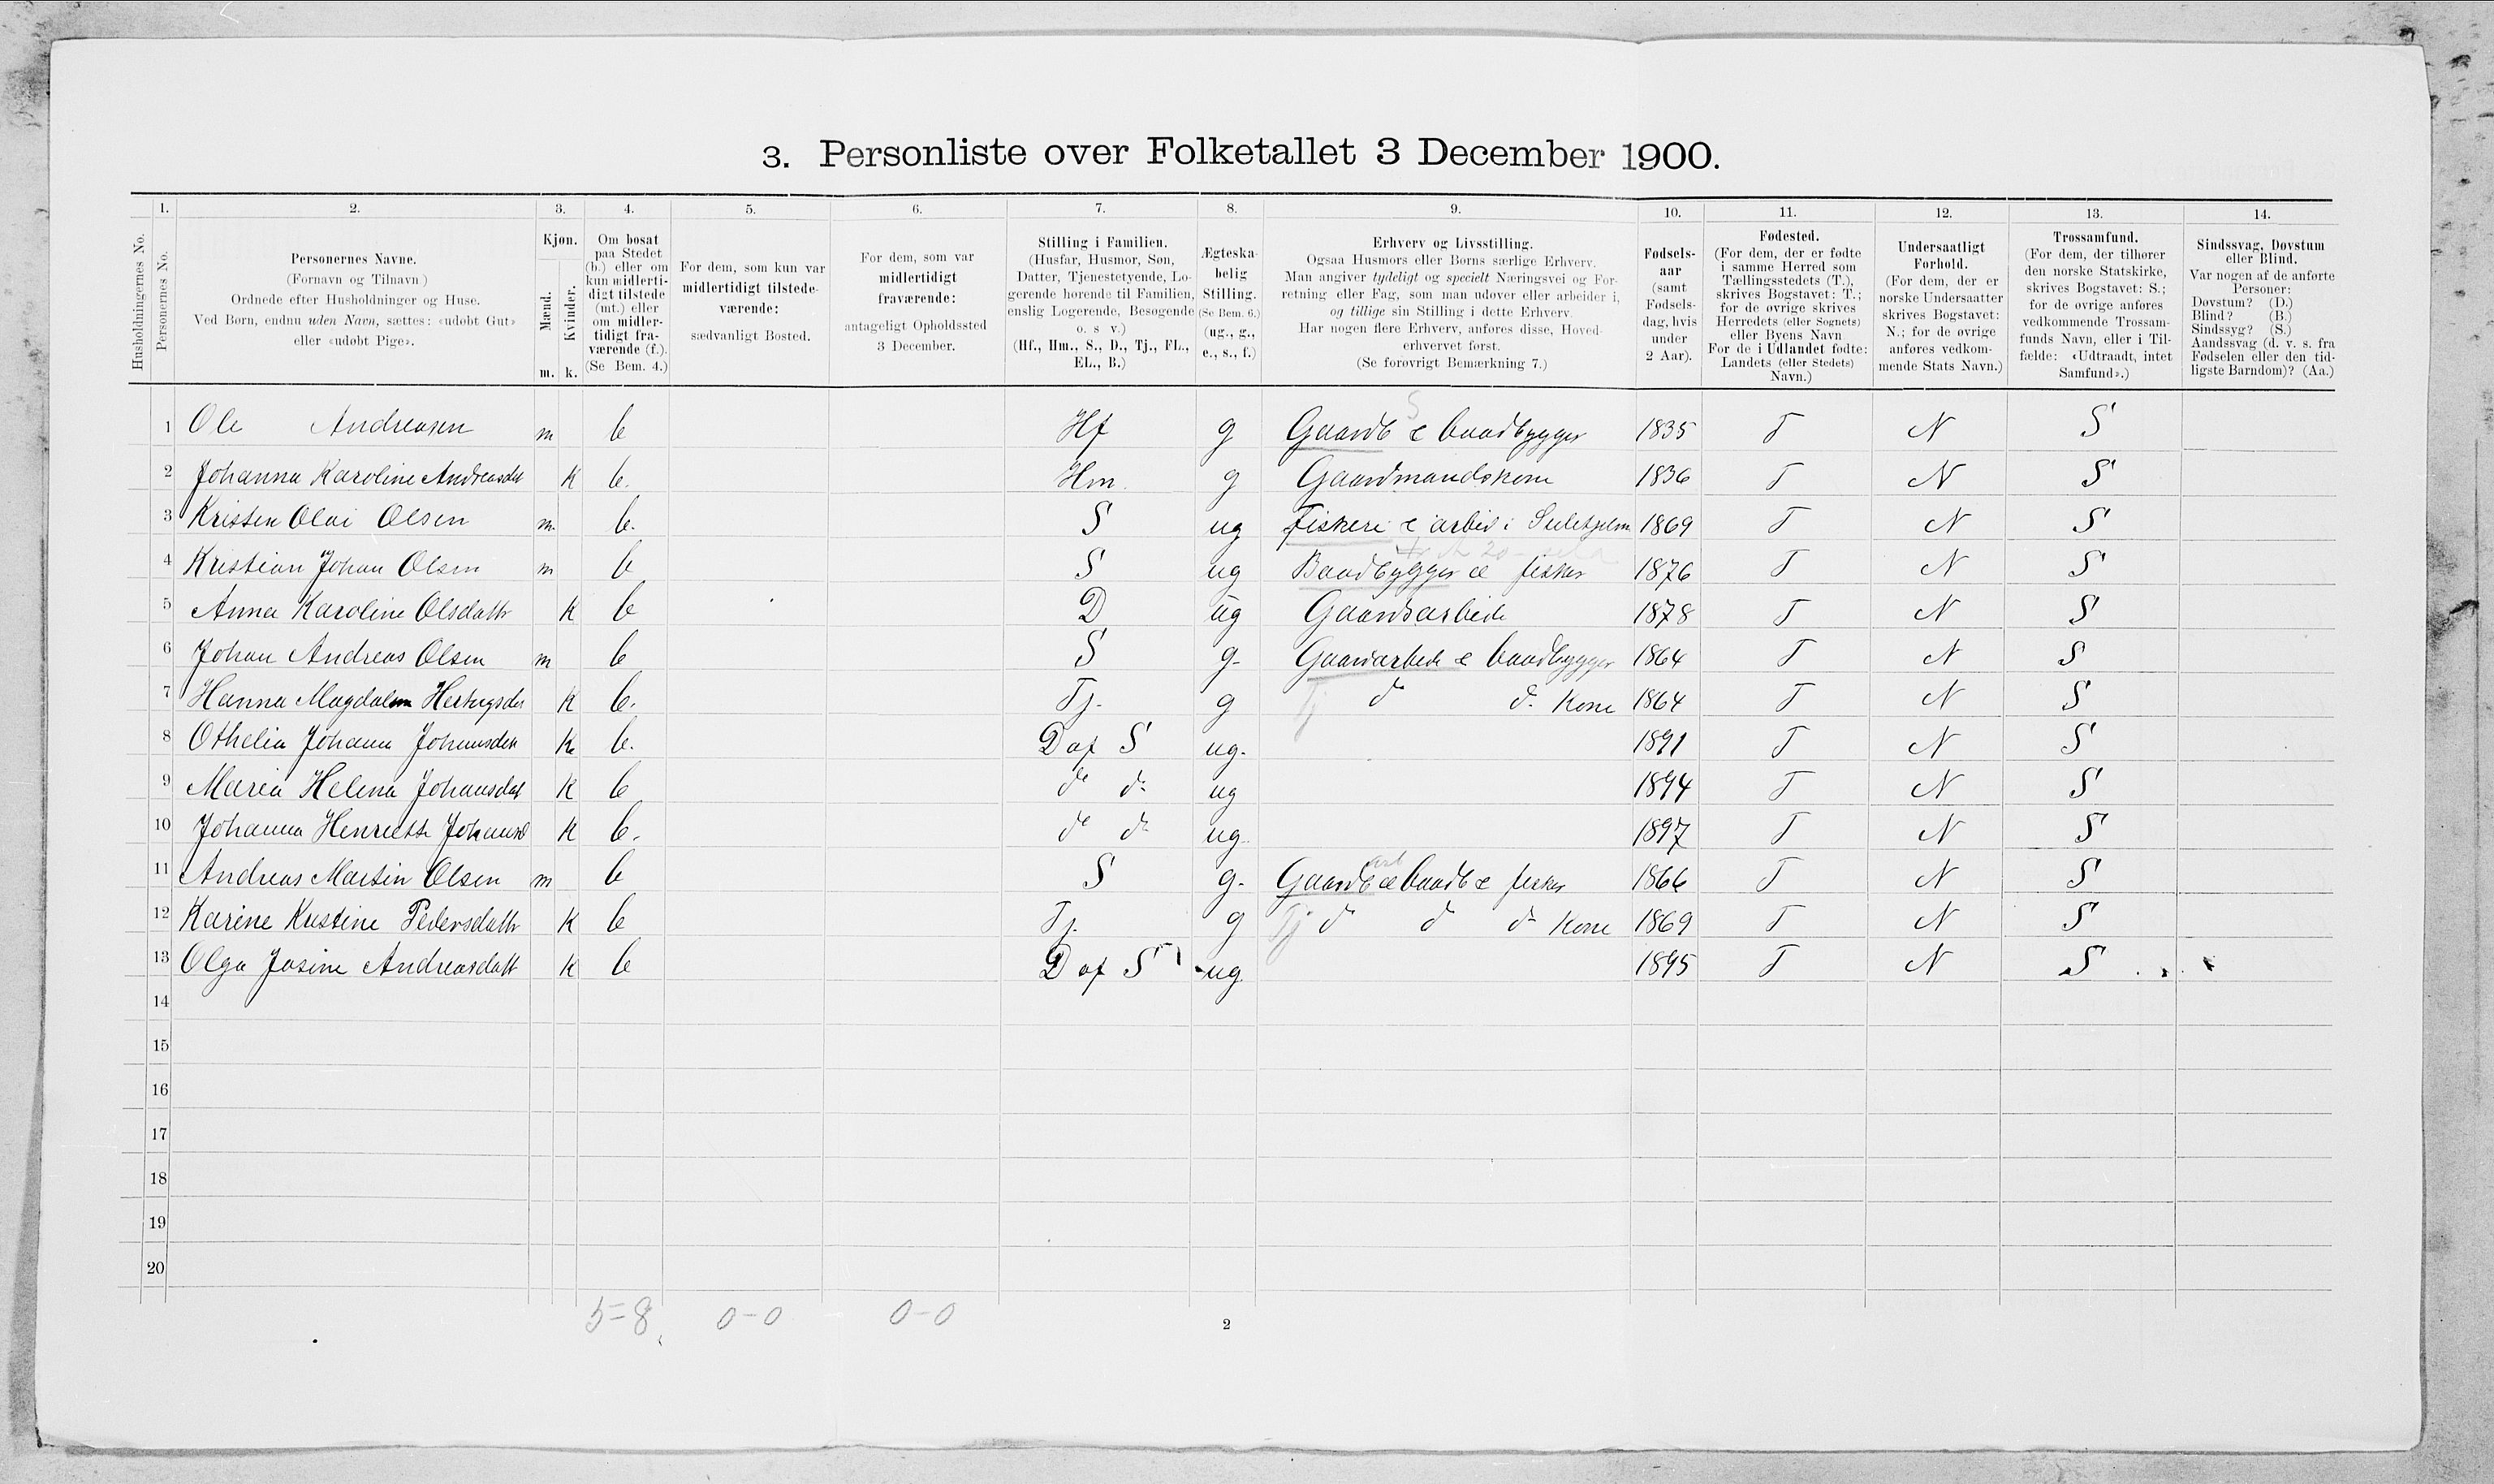 3. Personliste over Folketallet 3 December 1900.
1. 2. 3. 4. 5. 6. 7. 8. 9. 10. 11. 12. 13. 14.
Husholdningernes No.
Personernes No.
Personernes Navne.
(Fornavn og Tilnavn)
Ordnede efter Husholdninger og Huse.
Ved Børn, endnu uden Navn, sættes: «udøbt Gut»
eller «udøbt Pige».
Kjøn.
Mænd.
Kvinder.
m. k.
Om bosat
paa Stedet
(b.) eller om
kun midlerti-
digt tilstede
(mt.) eller
om midler-
tidigt fra-
værende (f.).
(Se Bem. 4.)
For dem, som kun var
midlertidigt tilstede-
værende:
sædvanligt Bosted.
For dem, som var
midlertidigt
fraværende:
antageligt Opholdssted
3 December.
Stilling i Familien.
(Husfar, Husmor, Søn,
Datter, Tjenestetyende, Lo-
gerende hørende til Familien,
enslig Logerende, Besøgende
o. s v.)
(Hf., Hm., S., D., Tj., FL.,
EL., B.)
Ægteska-
belig
Stilling.
(Se Bem. 6.)
(ug., g.,
e., s., f.)
Erhverv og Livsstilling.
Ogsaa Husmors eller Børns særlige Erhverv.
Man angiver tydeligt og specielt Næringsvei og For-
retning eller Fag, som man udøver eller arbeider i,
og tillige sin Stilling i dette Erhverv.
Har nogen flere Erhverv, anføres disse, Hoved-
erhvervet først.
(Se forøvrigt Bemærkning 7.)
Fødsels-
aar
(samt
Fødsels-
dag, hvis
under
2 Aar).
Fødested.
(For dem, der er fødte
i samme Herred som
Tællingsstedets (T.),
skrives Bogstavet: T.;
for de øvrige skrives
Herredets (eller Sognets)
eller Byens Navn
For de i Udlandet fødte:
Landets (eller Stedets)
Navn.)
Undersaatligt
Forhold.
(For dem, der er
norske Undersaatter
skrives Bogstavet:
N.; for de øvrige
anføres vedkom-
mende Stats Navn.)
Trossamfund.
(For dem, der tilhører
den norske Statskirke,
skrives Bogstavet: S.;
for de øvrige anføres
vedkommende Trossam-
funds Navn, eller i Til-
fælde: «Udtraadt, intet
Samfund».)
Sindssvag, Døvstum
eller Blind.
Var nogen af de anførte
Personer:
Døvstum? (D.)
Blind? (B.)
Sindssyg? (S.)
Aandssvag (d. v. s. fra
Fødselen eller den tid-
ligste Barndom)? (Aa.)
1 Ole Andreasen m b Hf g Gaardb & baadbygger 1835 T N S
2 Johanna Karoline Andreasdat K b. Hm. g Gaardmandskone 1836 T N S
3 Kristen Olai Olsen m b. S ug fiskeri & arbeid i Sulitjelm 1869 T N S
4 Kristian Johan Olsen m b S ug Baadbygger & fisker 1876 T N S
5 Anna Karoline Olsdattr K b D ug Gaardsarbeide 1878 T N S
6 Johan Andreas Olsen m b S g. Gaardarbeide & baadbygger 1864 T N S
7 Hanna Magdalena K b. Tj. g Tj do do Kone 1864 T N S
8 Othelia Johanna Johansdatt K b. D af S ug. 1891 T N S
9 Maria Helena Johansdat K b do do ug 1894 T N S
10 Johanna Henriette Johansd K b. do do ug. 1897 T N S
11 Andreas Martin Olsen m b S g. Gaardb & baadb & fisker 1866 T N S
12 Karine Kristine Pedersdattr K b Tj. g Tj do do do Kone 1869 T N S
13 Olga Josine Andreasdatt K b D af S ug 1895 T N S
14
15
16
17
18
19
20
5=8 0-0 0-0
2